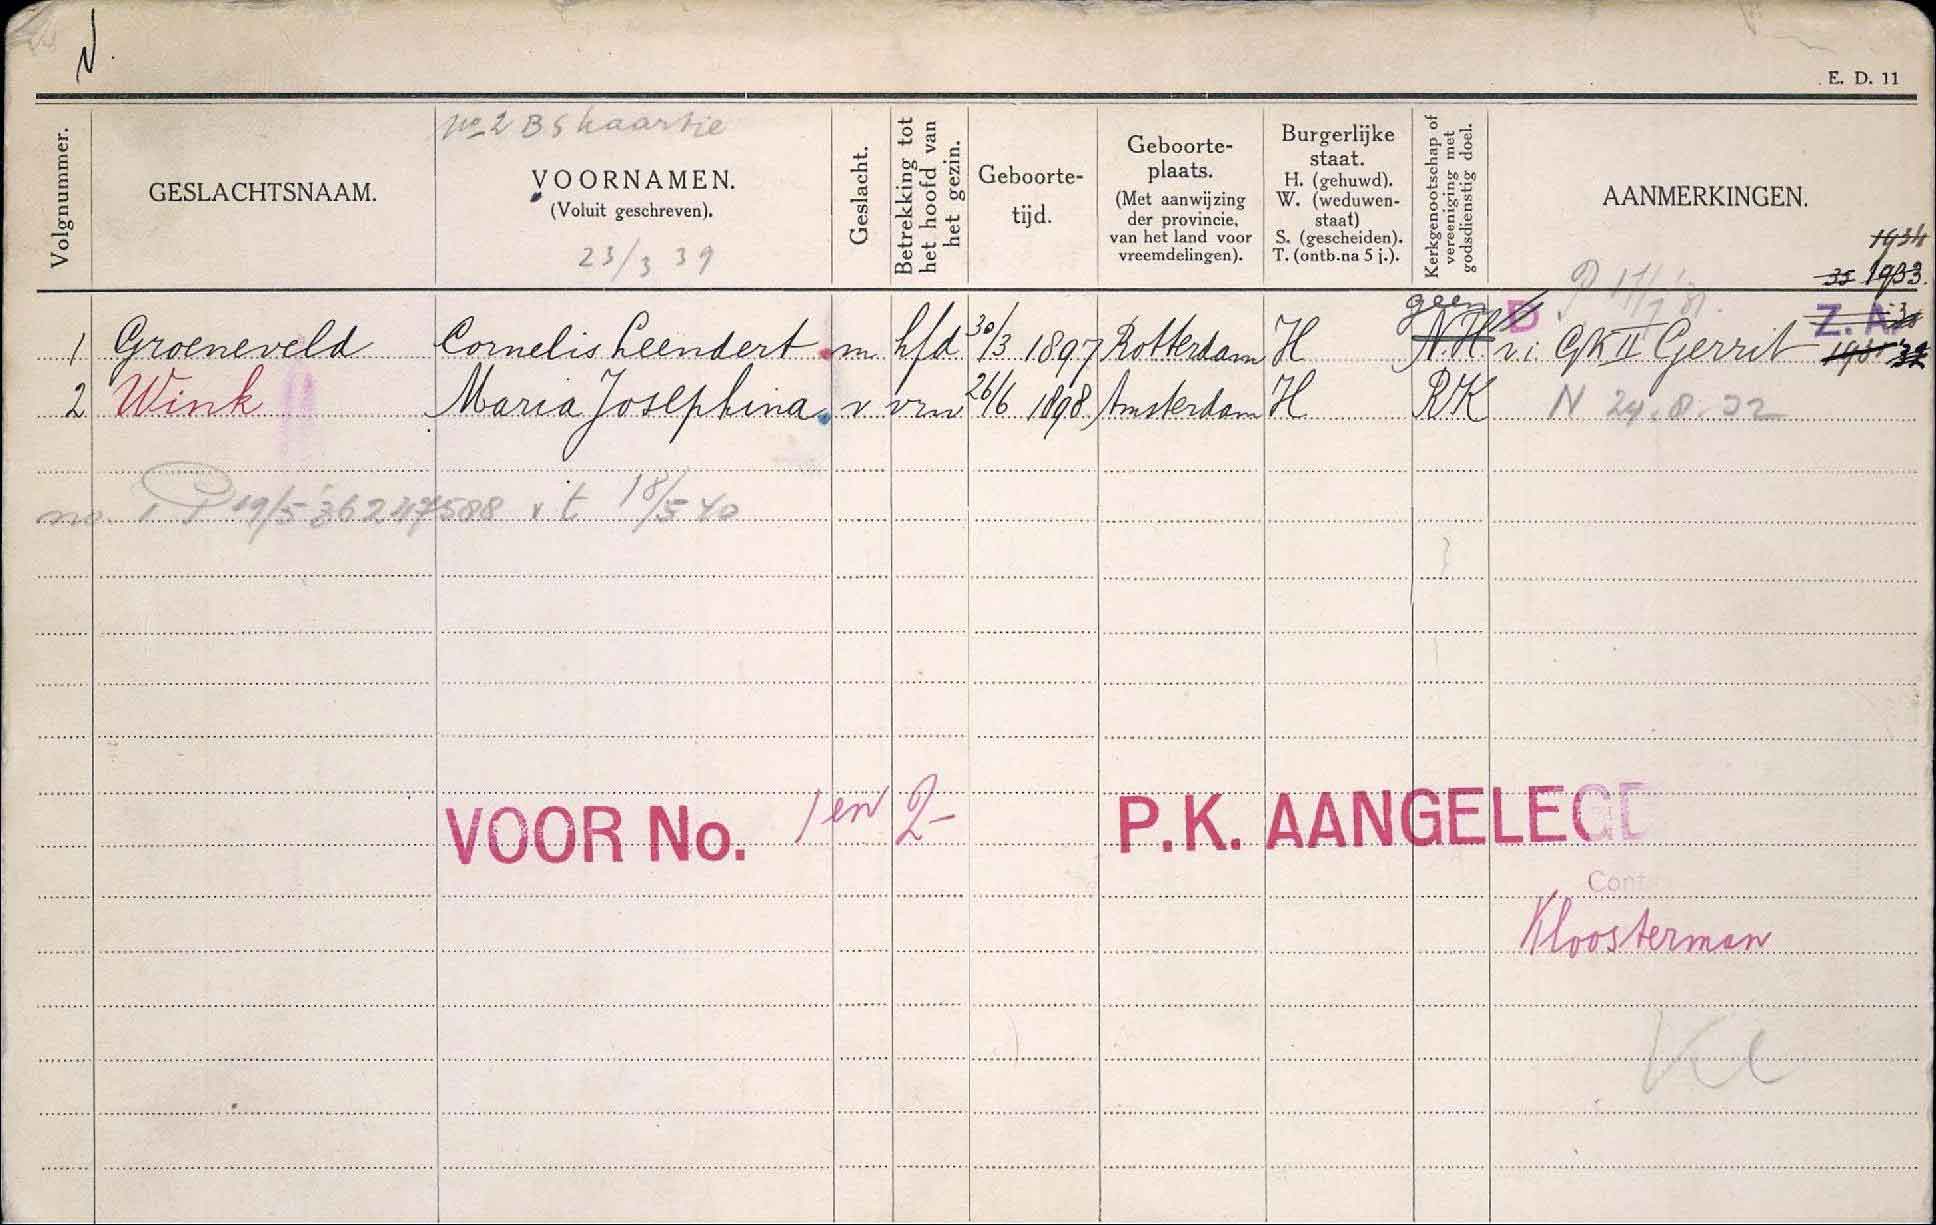 N.
E. D. 11
Volgnummer.
GESLACHTSNAAM.
no 2 BS kaartje
VOORNAMEN.
(Voluit geschreven).
23/3 39
Geslacht.
Betrekking tot
het hoofd van
het gezin.
Geboorte-
tijd.
Geboorte-
plaats.
(Met aanwijzing
der provincie,
van het land voor
vreemdelingen).
Burgerlijke
staat.
H. (gehuwd).
W. (weduwen-
staat)
S. (gescheiden).
T. (ontb.na 5 j.).
Kerkgenootschap of
vereeniging met
godsdienstig doel.
AANMERKINGEN.
1934
35 1933.
geen B Z. A.
1 Groeneveld Cornelis Leendert m hfd 30/3 1897 Rotterdam H N.H v.i. GK II Gerrit 1931 32
2 Wink Maria Josephina v vrw 26/6 1898 Amsterdam H RK N 24.8.22
no. P 19/5 36 247588 v t 18/5 40
VOOR No. 1 en 2- P.K. AANGELEGD
Cont
Kloosterman
Kl